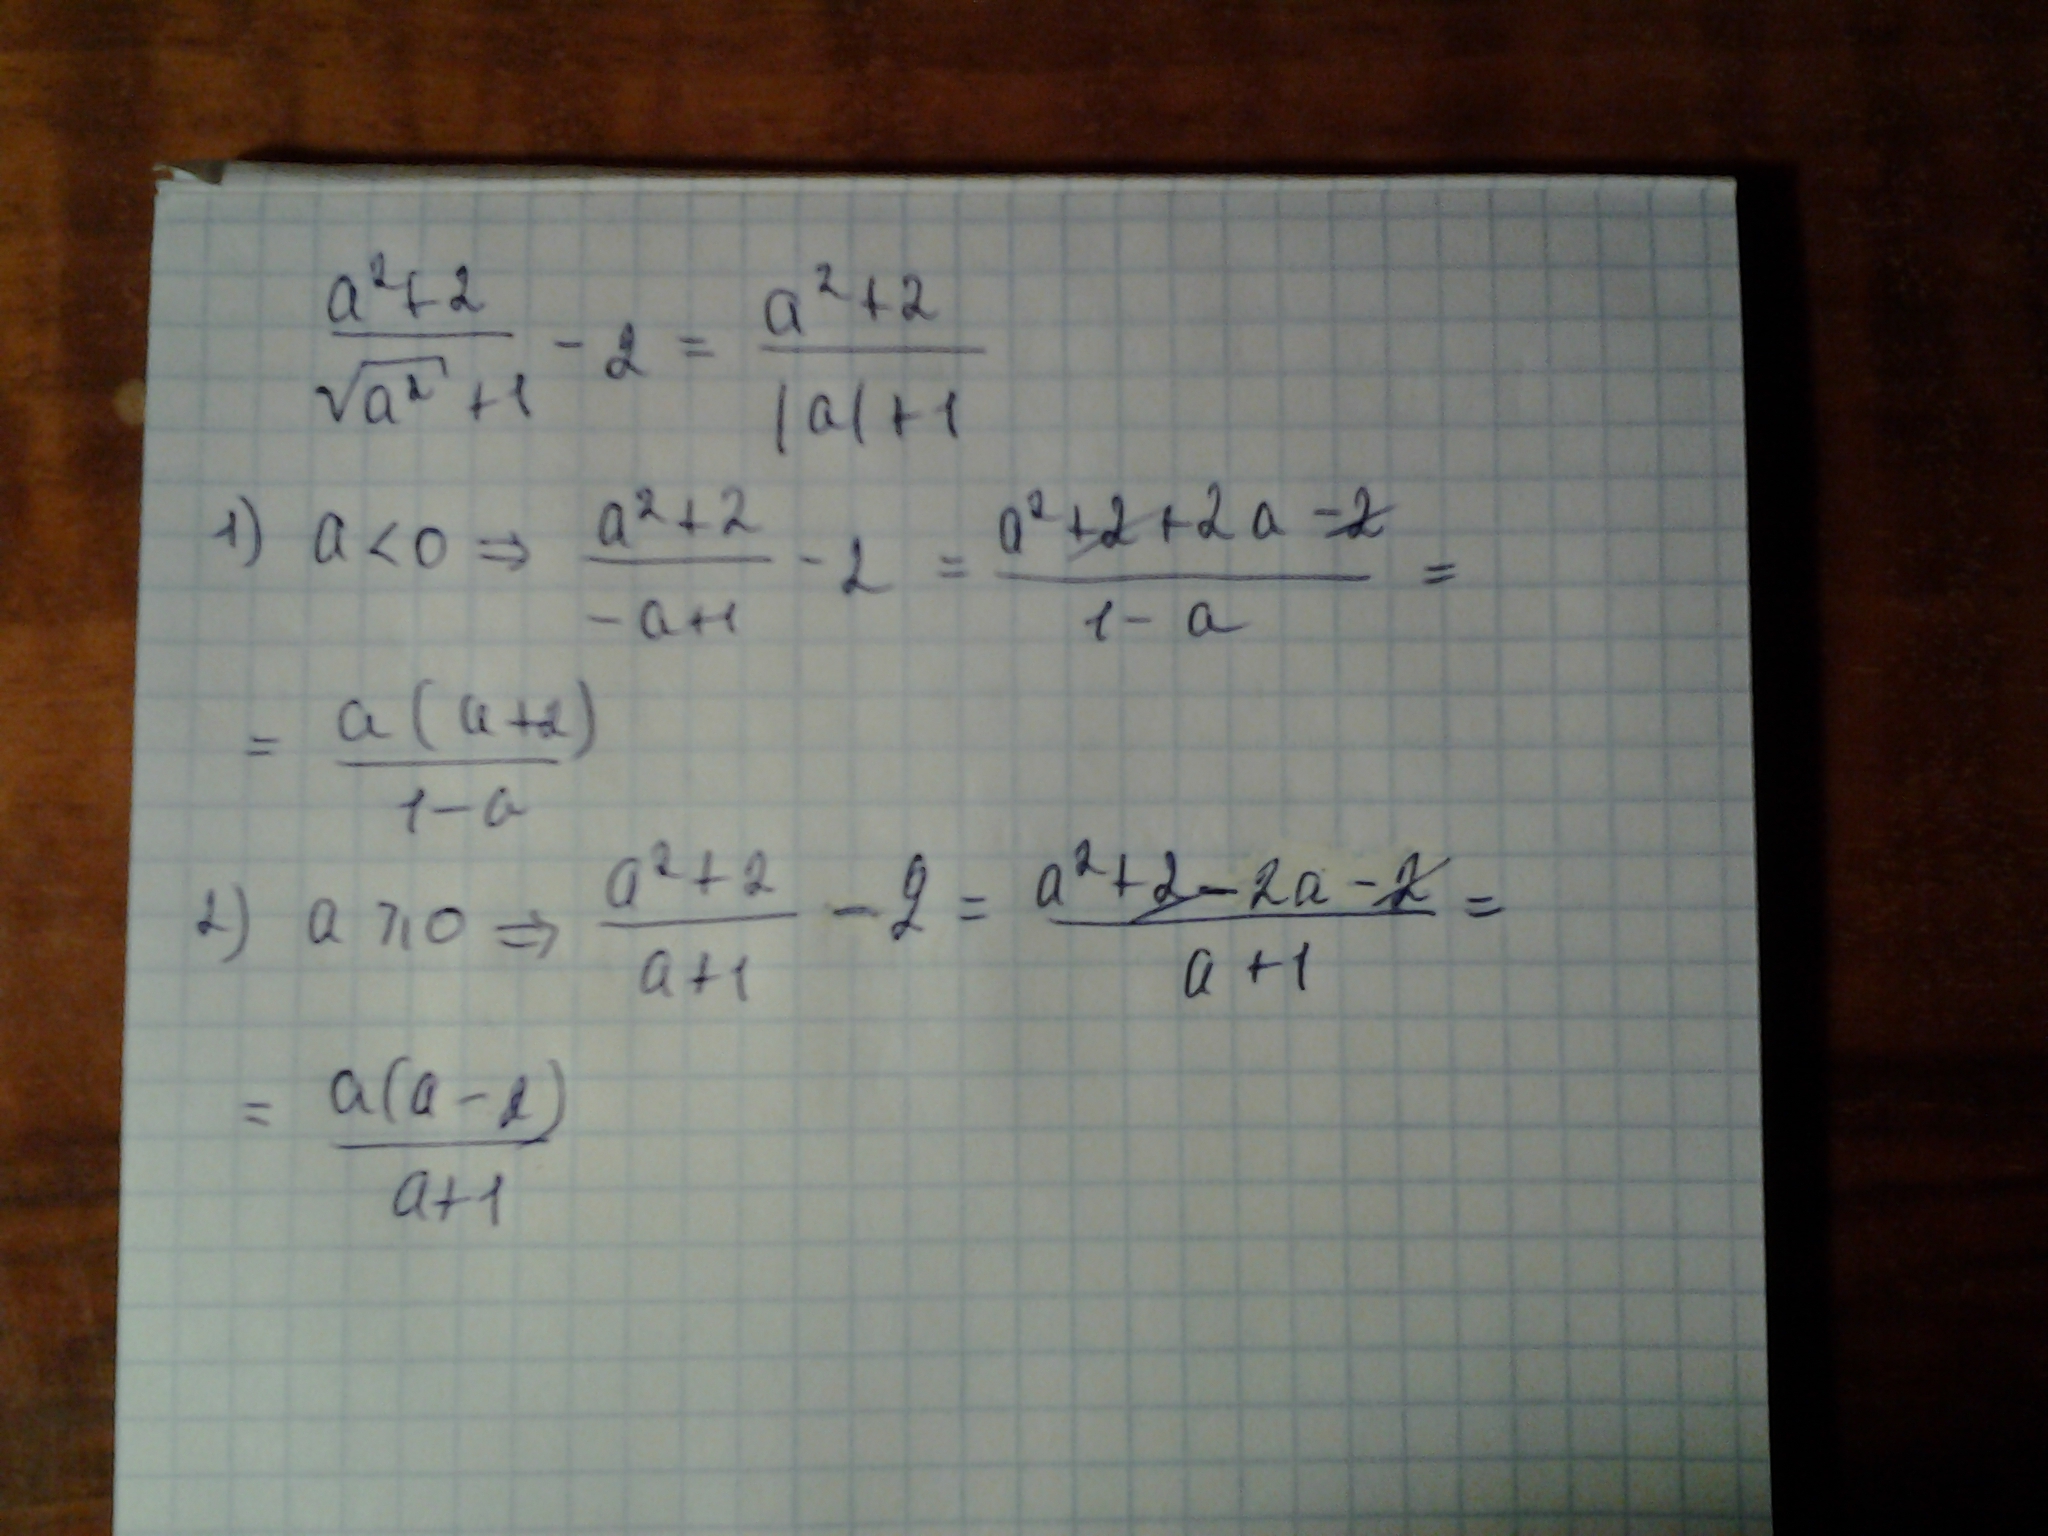 (a²+2)/(√a² +1) - 2 = (a²+2)/(|a|+1)
1) a<0 ⇒ (a²+2)/(-a+1) - 2 = (a²+2+2a-2)/(1-a) =
= a(a+2)/(1-a)
2) a⩾0 ⇒ (a²+2)/(a+1) - 2 = (a²+2-2a-2)/(a+1) =
= a(a-2)/(a+1)